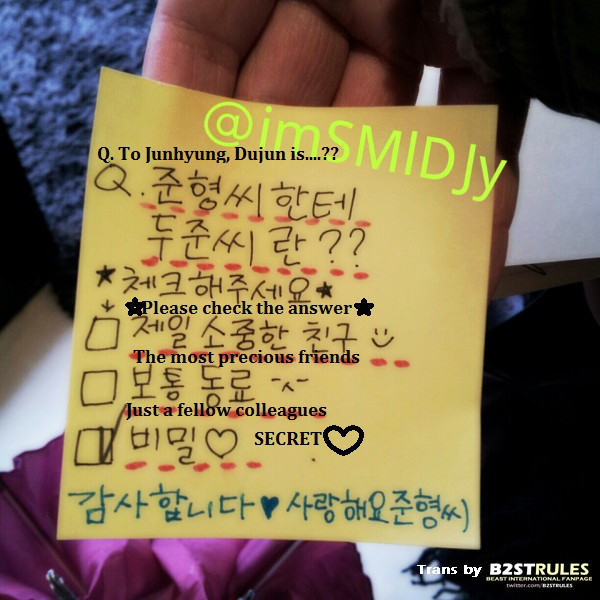 @imSMIDJy
Q. To Junhyung, Dujun is....??
Q. 준형씨 한테
두준씨 란 ??
★체크해주세요★
★Please check the answer★
제일 소중한 친구
The most precious friends
보통 동료
Just a fellow colleagues
비밀♡ SECRET♡
감사합니다♥ 사랑해요준형씨)
Trans by B2STRULES
BEAST INTERNATIONAL FANPAGE
twitter.com/B2STRULES